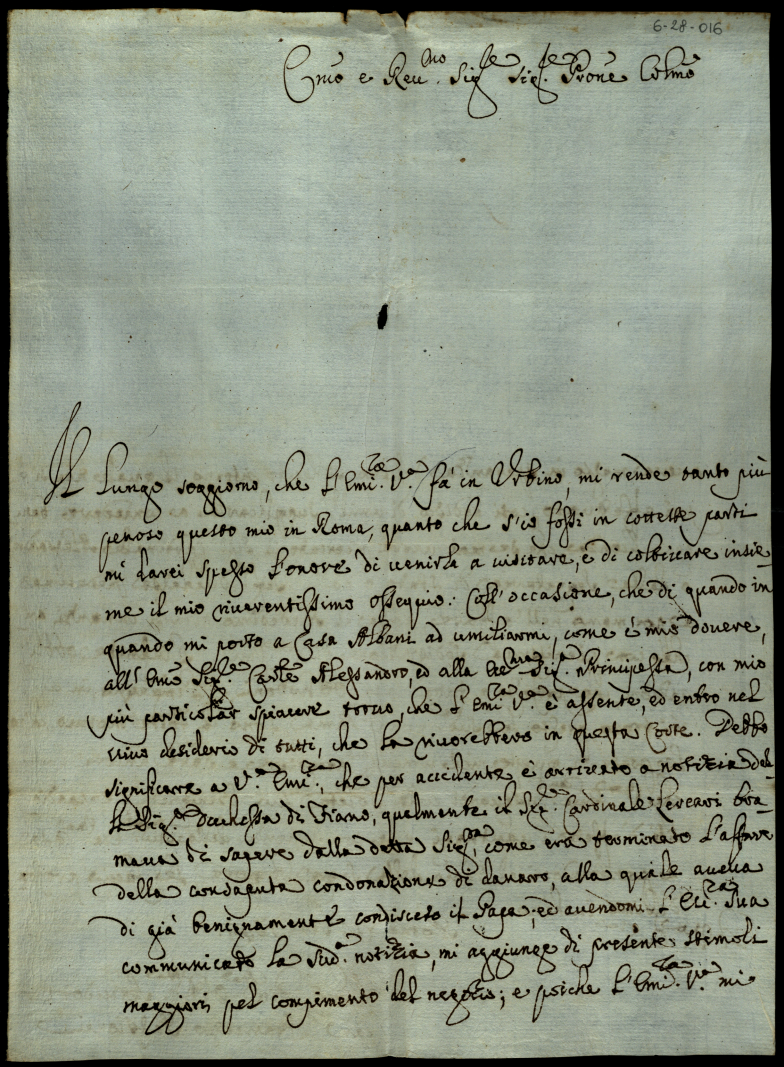 6-28-016
Emo e Reu.mo Sig.re Sig.re Prone Colmo
Il lungo soggiorno, che l'Emi.za V.a fá in Vrbino, mi rende tanto più
penoso questo mio in Roma, quanto che s'io fossi in cotteste parti
mi darei spesso l'onore di uenirla a uisitare, e di coltiuare insie-
me il mio riuerentissimo ossequio. Coll'occasione, che di quando in
quando mi porto a Casa Albani ad umiliarmi, come è mio douere,
all'Emo Sig.re Carle Alessandro, ed alla Sig.ra Principessa, con mio
più particolar spiacere trouo, che l'Emi.za V.a è assente, ed entro nel
uiuo desiderio di tutti, che la riuorebbero in questa Corte. Debbo
significare a V.a Emi.za, che per accidente è arriuato a notizia del-
la Sig.ra Duchessa di Fiano, qualmente il Sig.re Cardinale Lercari bra-
maua di sapere dalla detta Sig.ra, come era terminato l'affare
della consaputa condonazione di danaro, alla quale aueua
di già benignamente condisceso il Papa; ed auendomi l'Ecc.za Sua
communicato la sud.a notizia, mi aggiunge di presente stimoli
maggiori pel compimento del negozio; e poiche l'Emi.za V.a mi